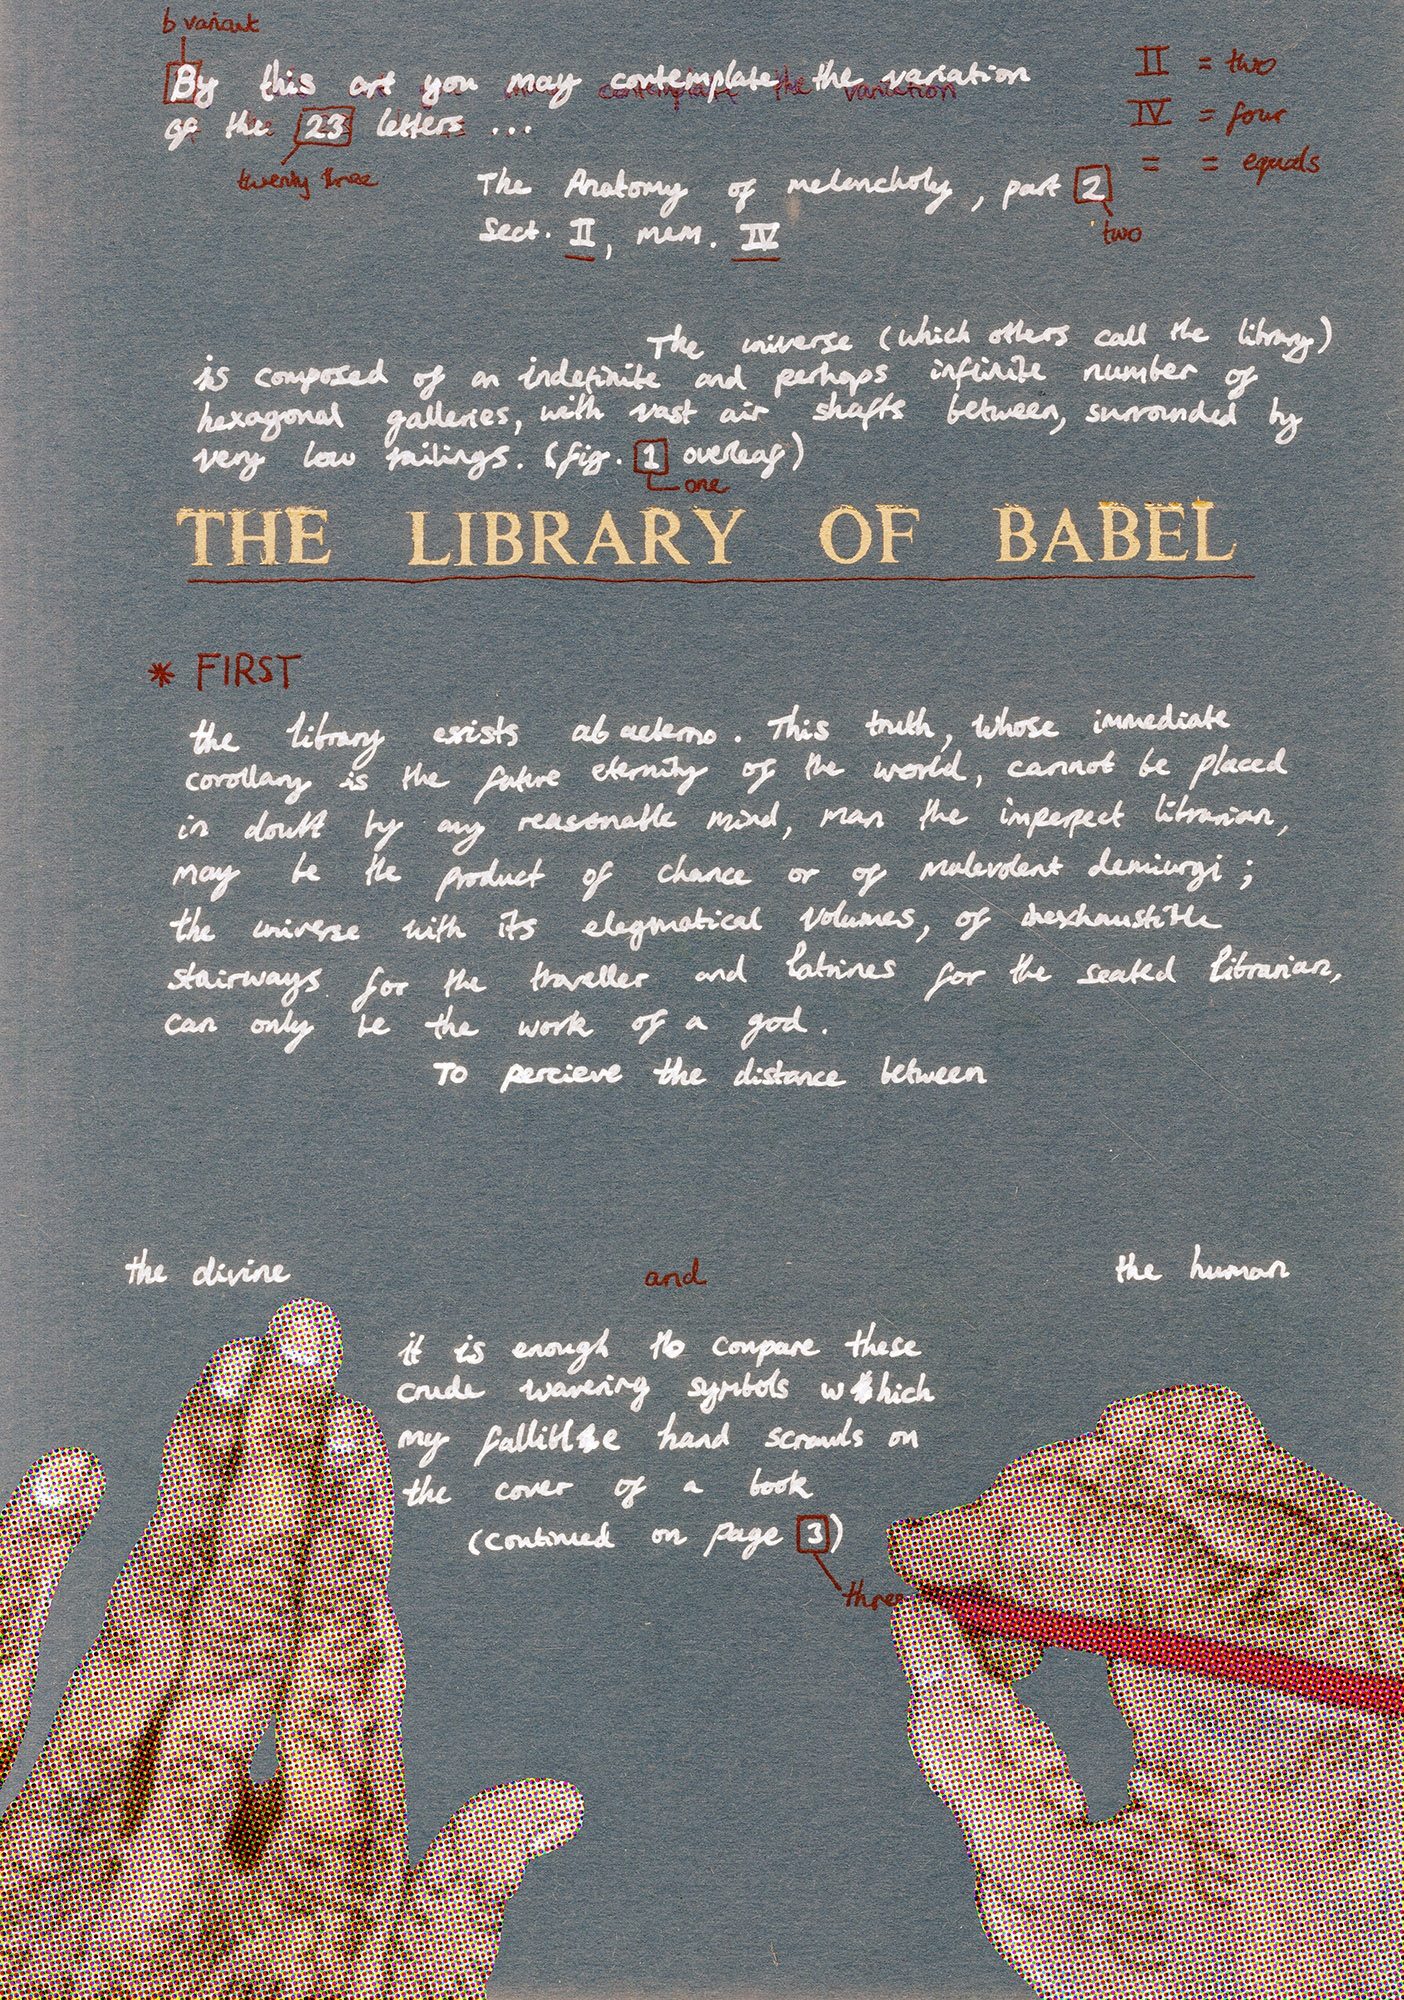 b variant
By this art you may contemplate the variation
of the 23 letters ...
twenty three
II = two
IV = four
= = equals
The Anatomy of melencholy, part 2
two
Sect. II, mem. IV
The universe (which others call the library)
is composed of an indefinite and perhaps infinite number of
hexagonal galleries, with vast air shafts between, surrounded by
very low railings. (fig. 1 overleaf)
one
THE LIBRARY OF BABEL
* FIRST
the library exists ab aeterno. This truth, whose immediate
corollary is the future eternity of the world, cannot be placed
in doubt by any reasonable mind, man the imperfect librarian,
may be the product of chance or of malevolent demiurgi;
the universe with its elegmatical volumes, of inexhaustible
stairways for the traveller and latrines for the seated librarian,
can only be the work of a god.
To percieve the distance between
the divine and the human
it is enough to compare these
crude wavering symbols which
my fallible hand scrawls on
the cover of a book
(continued on page 3)
three